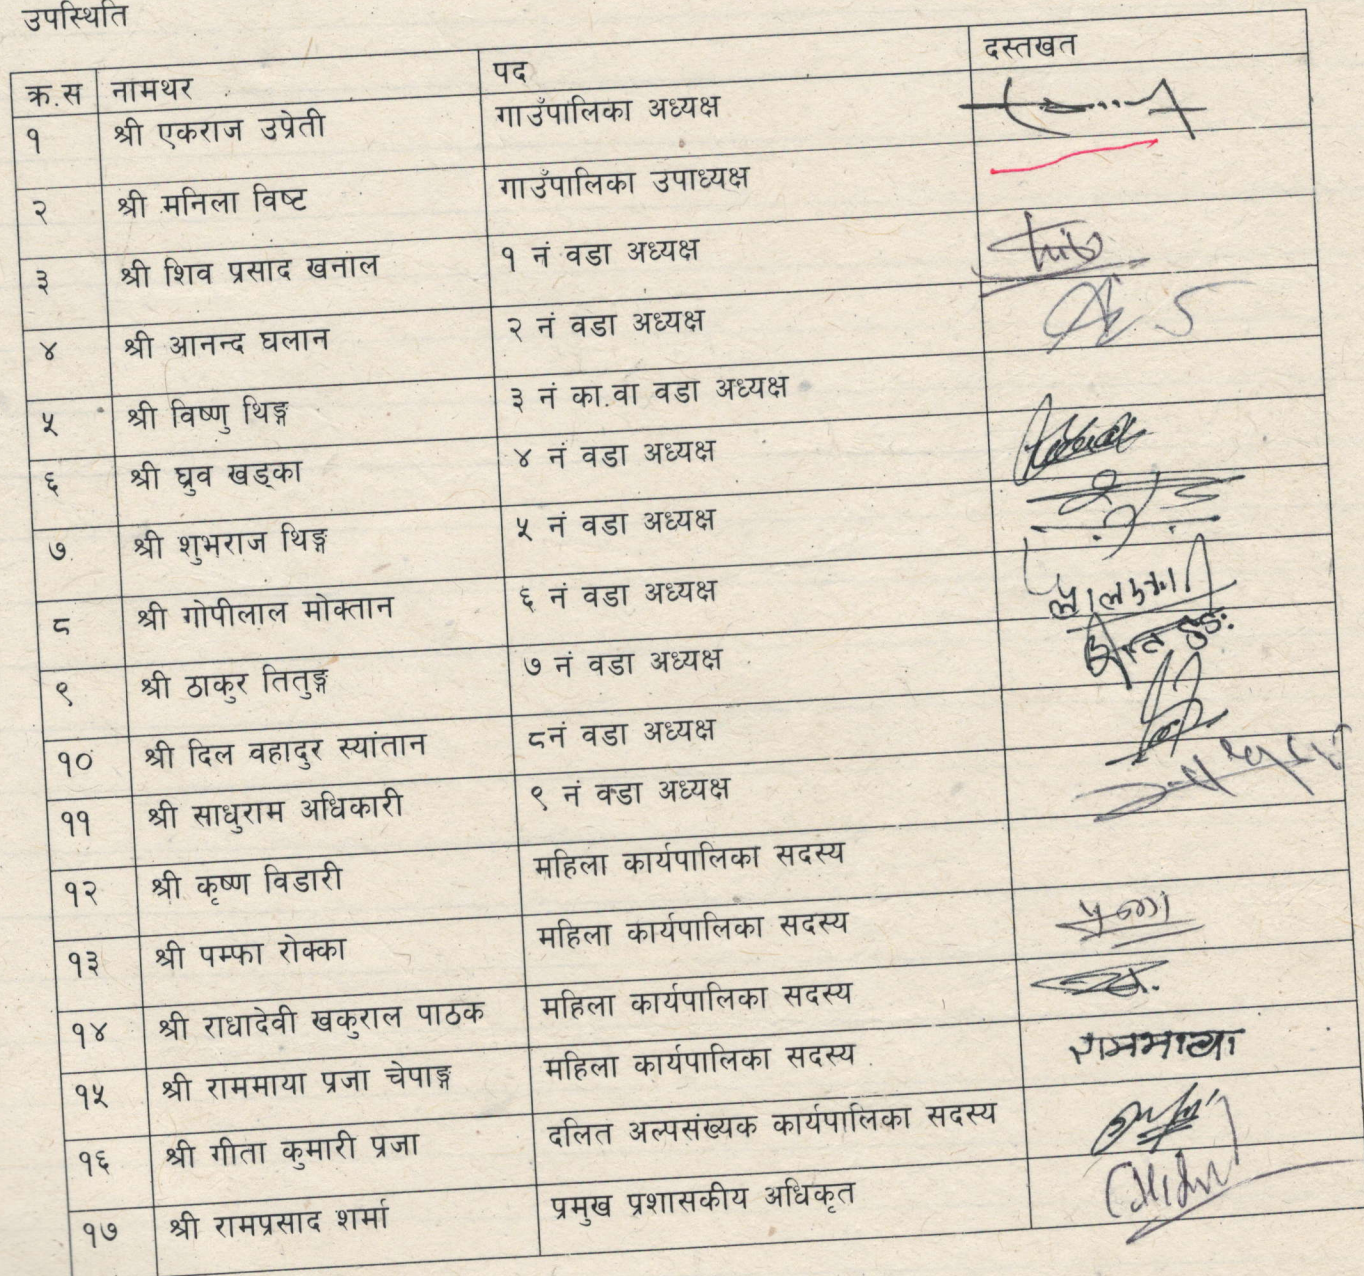 उपस्थिति
क्र.स नामथर पद दस्तखत
१ श्री एकराज उप्रेती गाउँपालिका अध्यक्ष
२ श्री मनिला विष्ट गाउँपालिका उपाध्यक्ष
३ श्री शिव प्रसाद खनाल १ नं वडा अध्यक्ष
४ श्री आनन्द घलान २ नं वडा अध्यक्ष
५ श्री विष्णु थिङ्ग ३ नं का.वा वडा अध्यक्ष
६ श्री घ्रुव खड्का ४ नं वडा अध्यक्ष
७ श्री शुभराज थिङ्ग ५ नं वडा अध्यक्ष
८ श्री गोपीलाल मोक्तान ६ नं वडा अध्यक्ष
९ श्री ठाकुर तितुङ्ग ७ नं वडा अध्यक्ष
१० श्री दिल वहादुर स्यांतान ८नं वडा अध्यक्ष
११ श्री साधुराम अधिकारी ९ नं वडा अध्यक्ष
१२ श्री कृष्ण विडारी महिला कार्यपालिका सदस्य
१३ श्री पम्फा रोक्का महिला कार्यपालिका सदस्य
१४ श्री राधादेवी खकुराल पाठक महिला कार्यपालिका सदस्य
१५ श्री राममाया प्रजा चेपाङ्ग महिला कार्यपालिका सदस्य राममाया
१६ श्री गीता कुमारी प्रजा दलित अल्पसंख्यक कार्यपालिका सदस्य
१७ श्री रामप्रसाद शर्मा प्रमुख प्रशासकीय अधिकृत